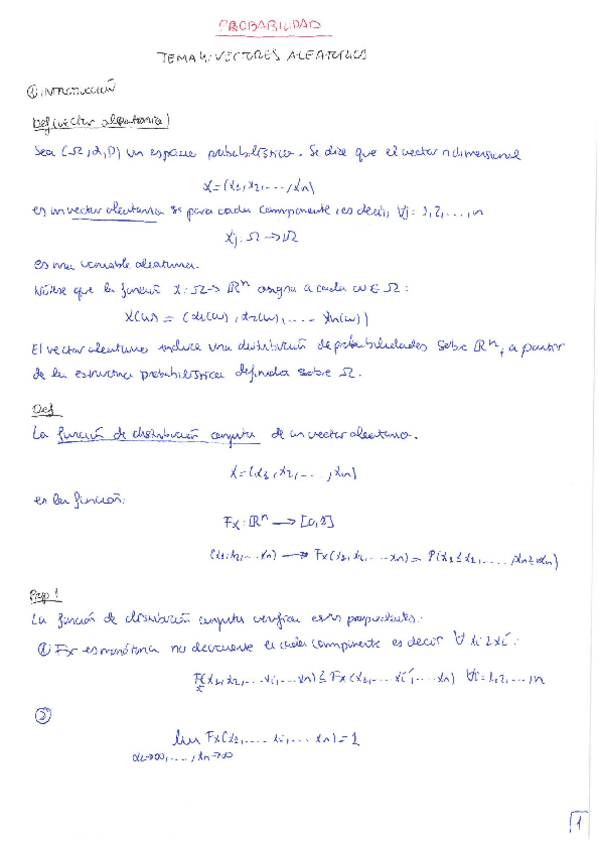 PROBABILIDAD
TEMA 4: VECTORES ALEATORIOS
① INTRODUCCIÓN
Def (vector aleatorio)
Sea (Ω, A, P) un espacio probabilístico. Se dice que el vector n dimensional
X = (X1, X2, ..., Xn)
es un vector aleatorio si para cada componente, es decir, ∀j = 1, 2, ..., n
Xj: Ω → R
es una variable aleatoria.
Nótese que la función X: Ω → Rⁿ asigna a cada ω ∈ Ω:
X(ω) = (X1(ω), X2(ω), ... Xn(ω))
El vector aleatorio induce una distribución de probabilidades sobre Rⁿ, a partir
de la estructura probabilística definida sobre Ω.
Def
La función de distribución conjunta de un vector aleatorio.
X = (X1, X2, ..., Xn)
es la función:
Fx: Rⁿ → [0,1]
(x1, x2, ... xn) → Fx(x1, x2, ... xn) = P(X1 ≤ x1, ..., Xn ≤ xn)
Prop 1
La función de distribución conjunta verifica estas propiedades:
① Fx es monótona no decreciente en cada componente es decir ∀ xi ≤ xi':
Fx(x1, x2, ... xi, ... xn) ≤ Fx(x1, ... xi', ... xn) ∀i = 1, 2, ..., n
②
lim Fx(x1, ... xi, ... xn) = 1
x1→∞, ..., xn→∞
1